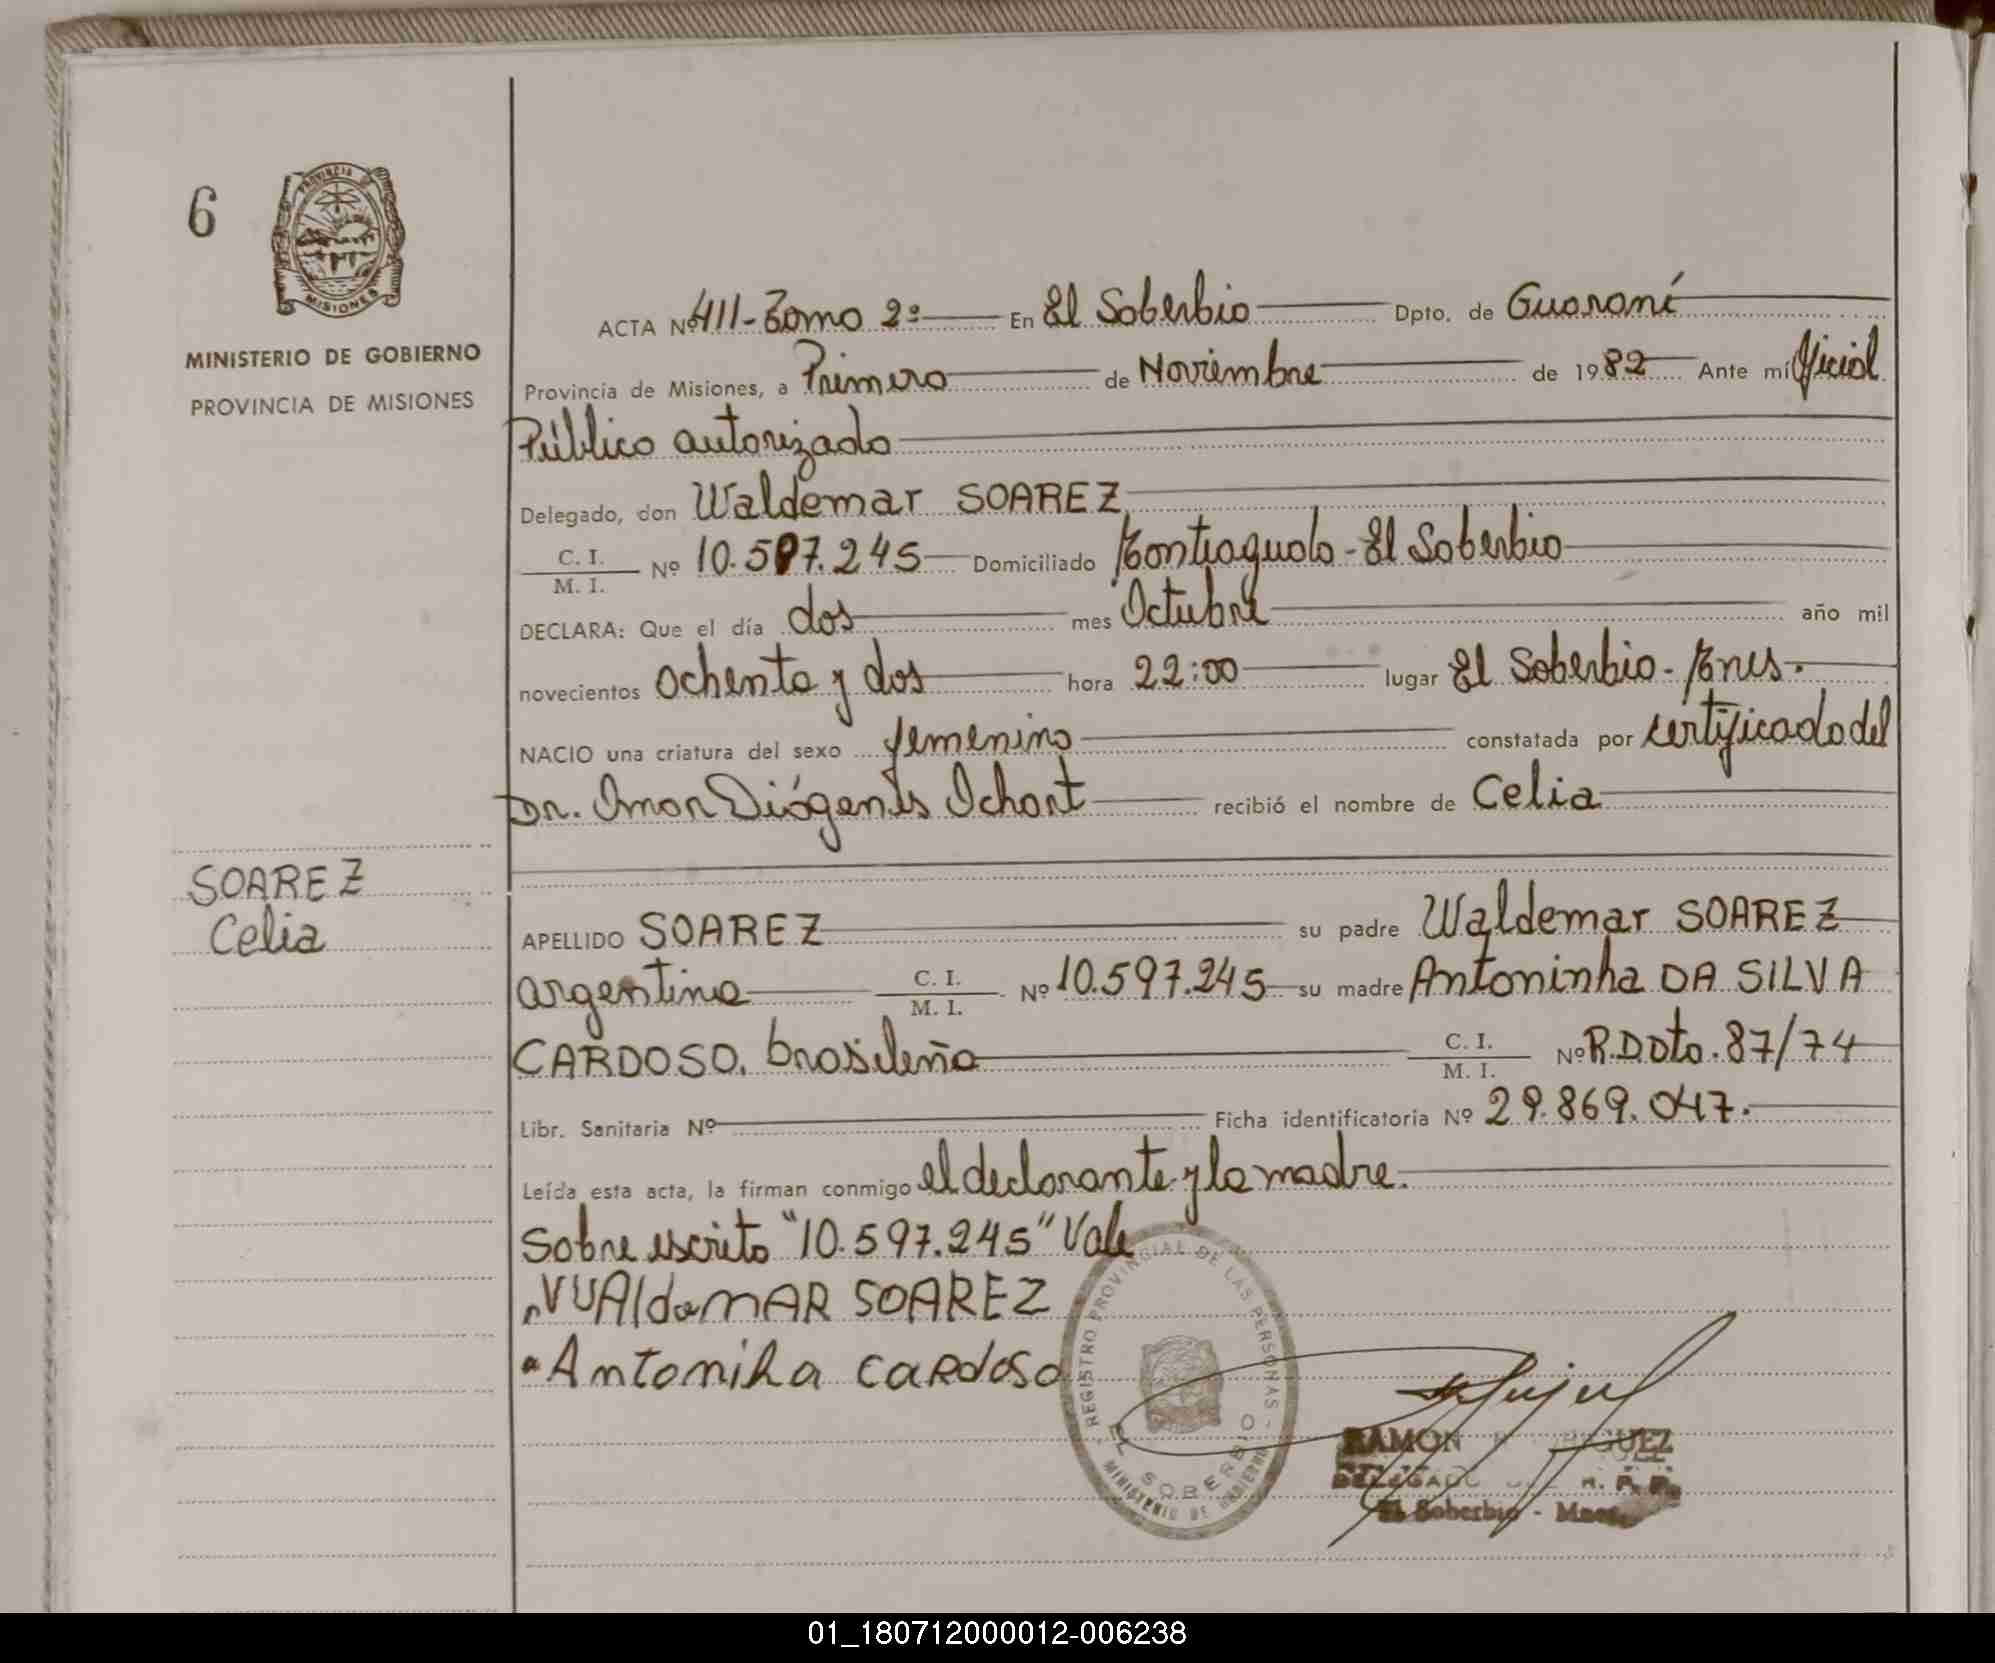 6
PROVINCIA DE
MISIONES
MINISTERIO DE GOBIERNO
PROVINCIA DE MISIONES
ACTA Nº 411-Tomo 2º En El Soberbio Dpto. de Guaraní
Provincia de Misiones, a Primero de Noviembre de 1982 Ante mí Oficial
Público autorizado
Delegado, don Waldemar SOAREZ
C. I.
M. I. Nº 10.597.245 Domiciliado Montiaguolo - El Soberbio
DECLARA: Que el día dos mes Octubre año mil
novecientos ochenta y dos hora 22:00 lugar El Soberbio - Mnes.
NACIO una criatura del sexo femenino constatada por certificado del
Dr. Omar Diógenes Ochart recibió el nombre de Celia
SOAREZ
Celia
APELLIDO SOAREZ su padre Waldemar SOAREZ
argentino C. I.
M. I. Nº 10.597.245 su madre Antoninha DA SILVA
CARDOSO. brasileña C. I.
M. I. Nº R.Dto. 87/74
Libr. Sanitaria Nº Ficha identificatoria Nº 29.869.047.
Leída esta acta, la firman conmigo el declarante y la madre.
Sobre escrito "10.597.245" Vale
VUAldemAR SOAREZ
Antoniha CARdoso
REGISTRO PROVINCIAL DE LAS PERSONAS -
EL SOBERBIO
MINISTERIO DE GOBIERNO
RAMON
DELEGADO DEL R. P. P.
El Soberbio - Mnes.
01_180712000012-006238